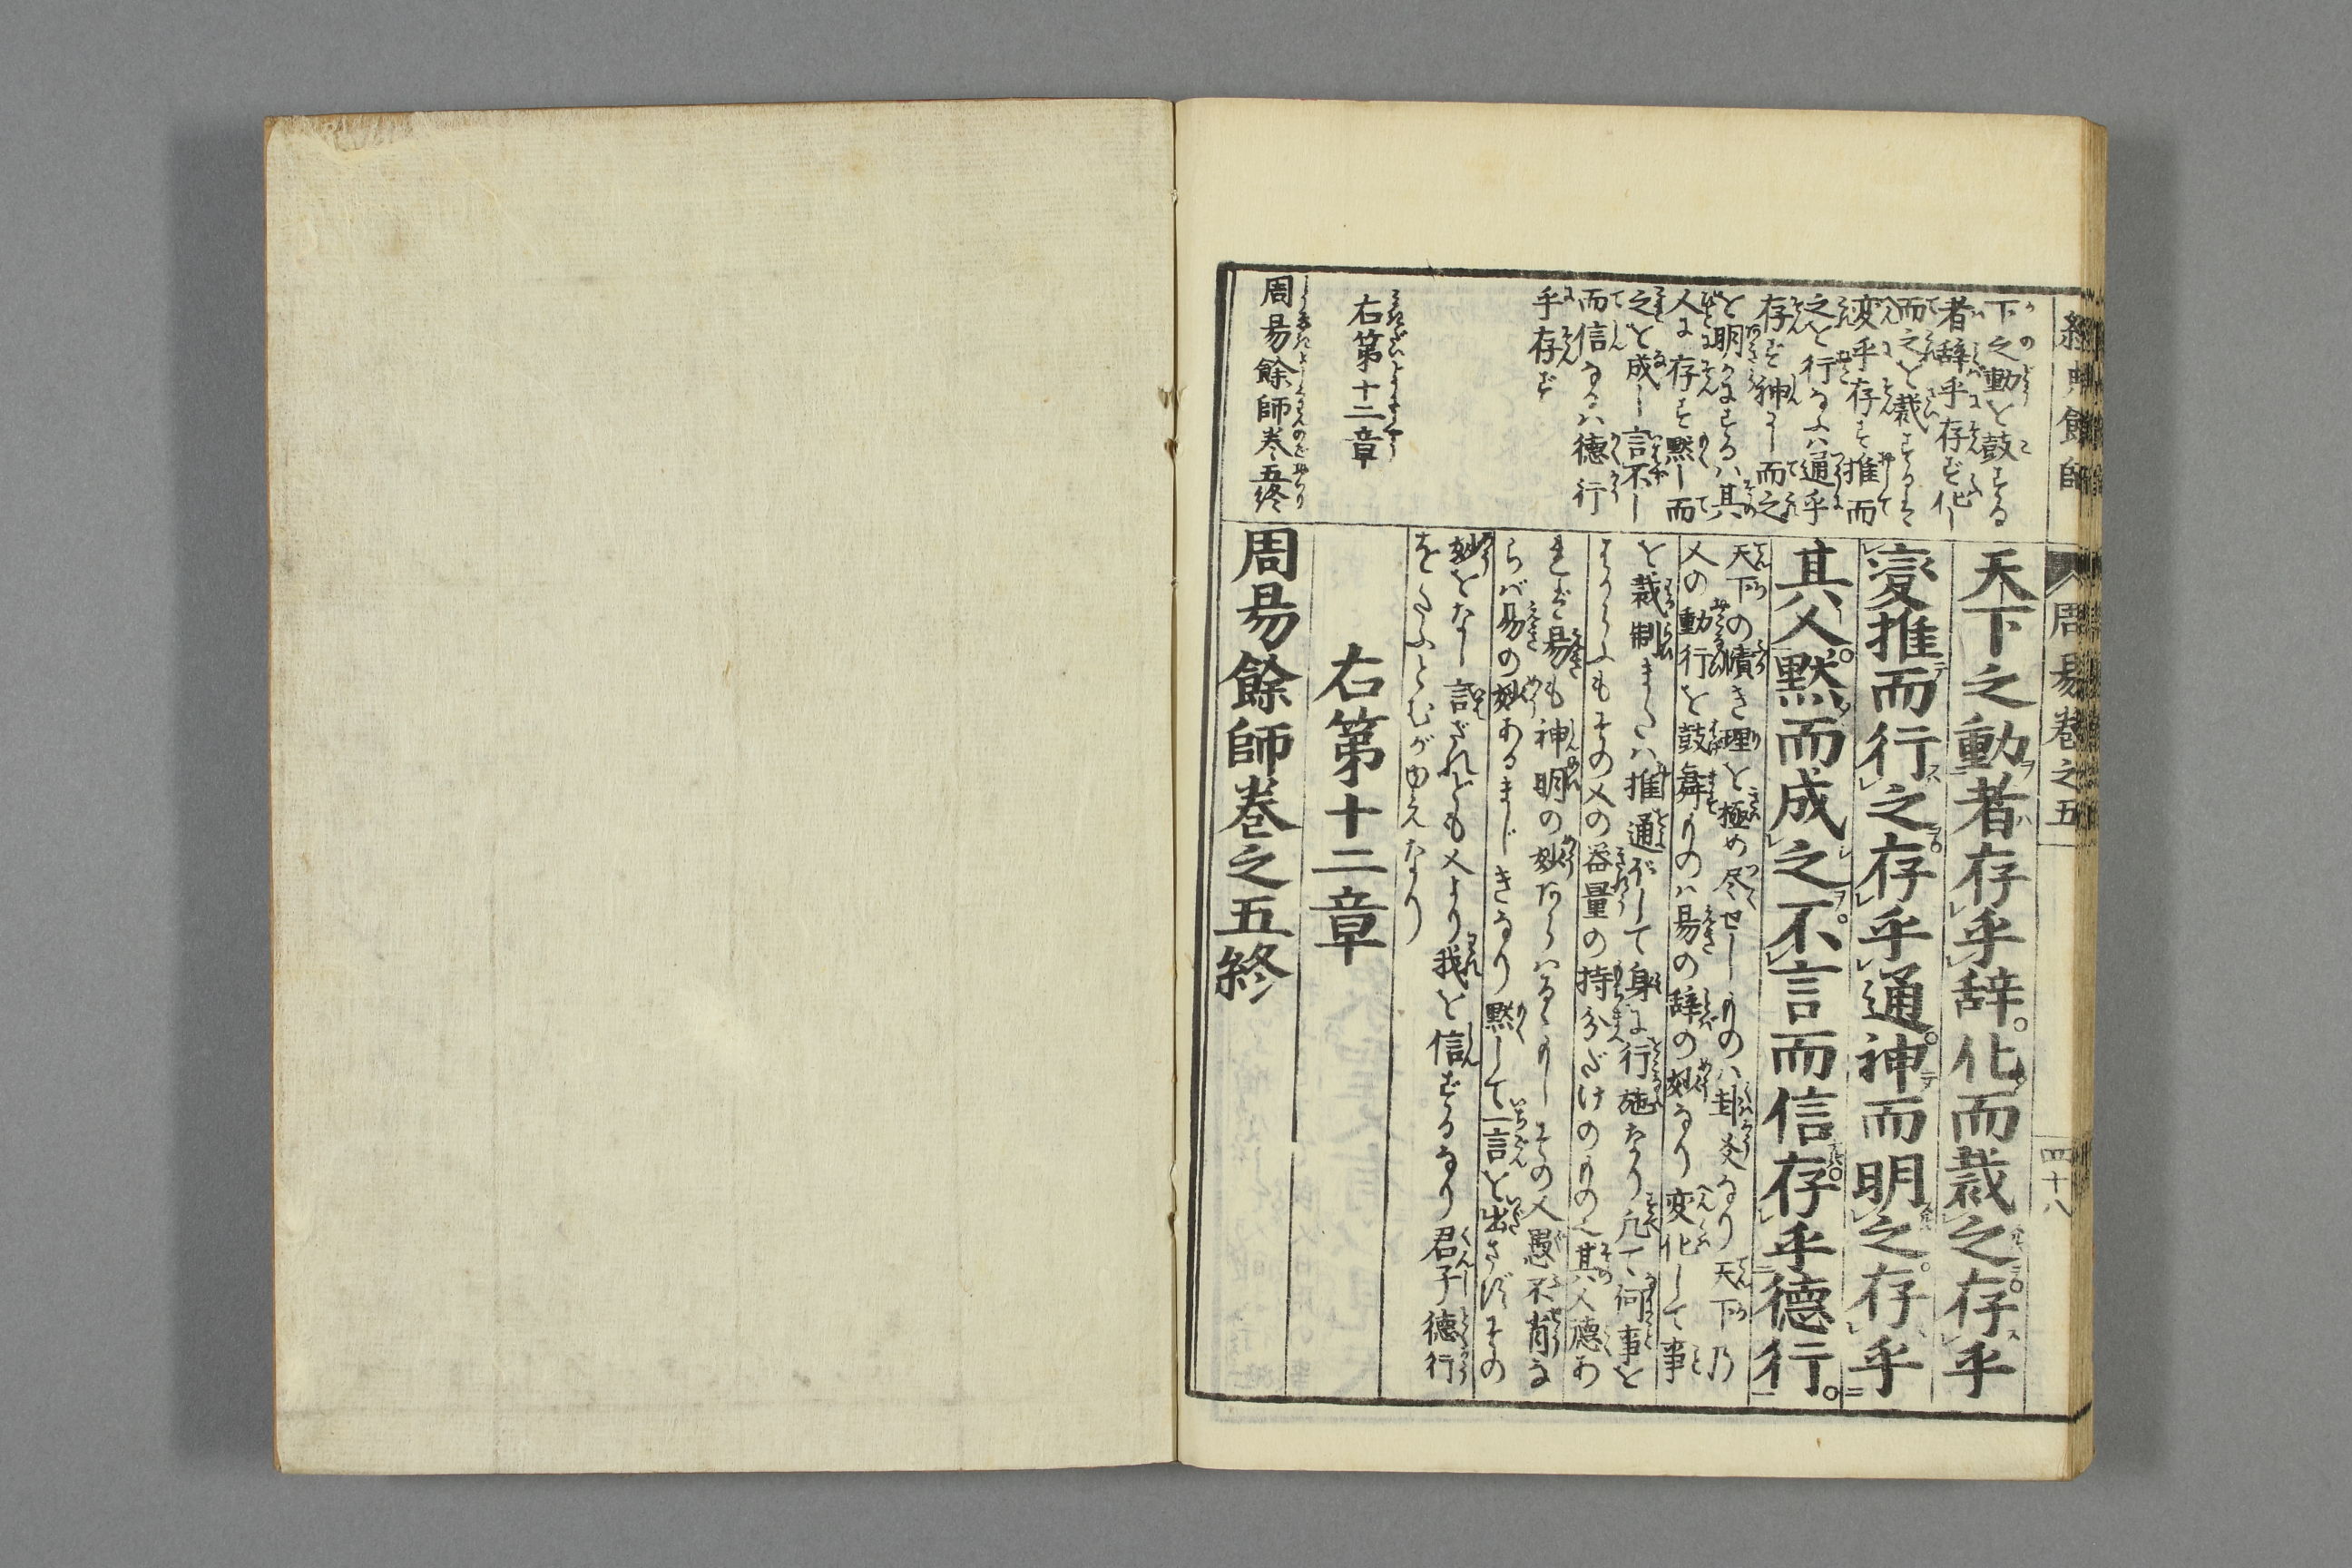 経典餘師
周易巻之五
四十八
下之動を鼓する
者辞乎存ず化し
而之を裁するそ
変乎存す推而
之を行なふハ通乎
存す神にし而之
を明かにするハ其
人に存す黙し而
之を成し言不し
而信なるハ徳行
乎存ず
右第十二章
周易餘師巻五終
天下之動者存乎辞化而裁之存乎
變推而行之存乎通神而明之存乎
其人黙而成之不言而信存乎徳行
天下の賾き理を極め尽せしものハ卦爻なり天下乃
人の動行を鼓舞ものハ易の辞の妙なり変化して事
を裁制またハ推通ぼして身に行施なり凡て何事を
まかなふもその人の器量の持分だけのもの之其人徳あ
れば易も神明の妙あらハるべしその人愚不肖な
らバ易の妙あるまじきなり黙して一言を出さずその
妙をなし言ざれども人より我を信ずるなり君子徳行
をたふとむがゆえなり
右第十二章
周易餘師巻之五終